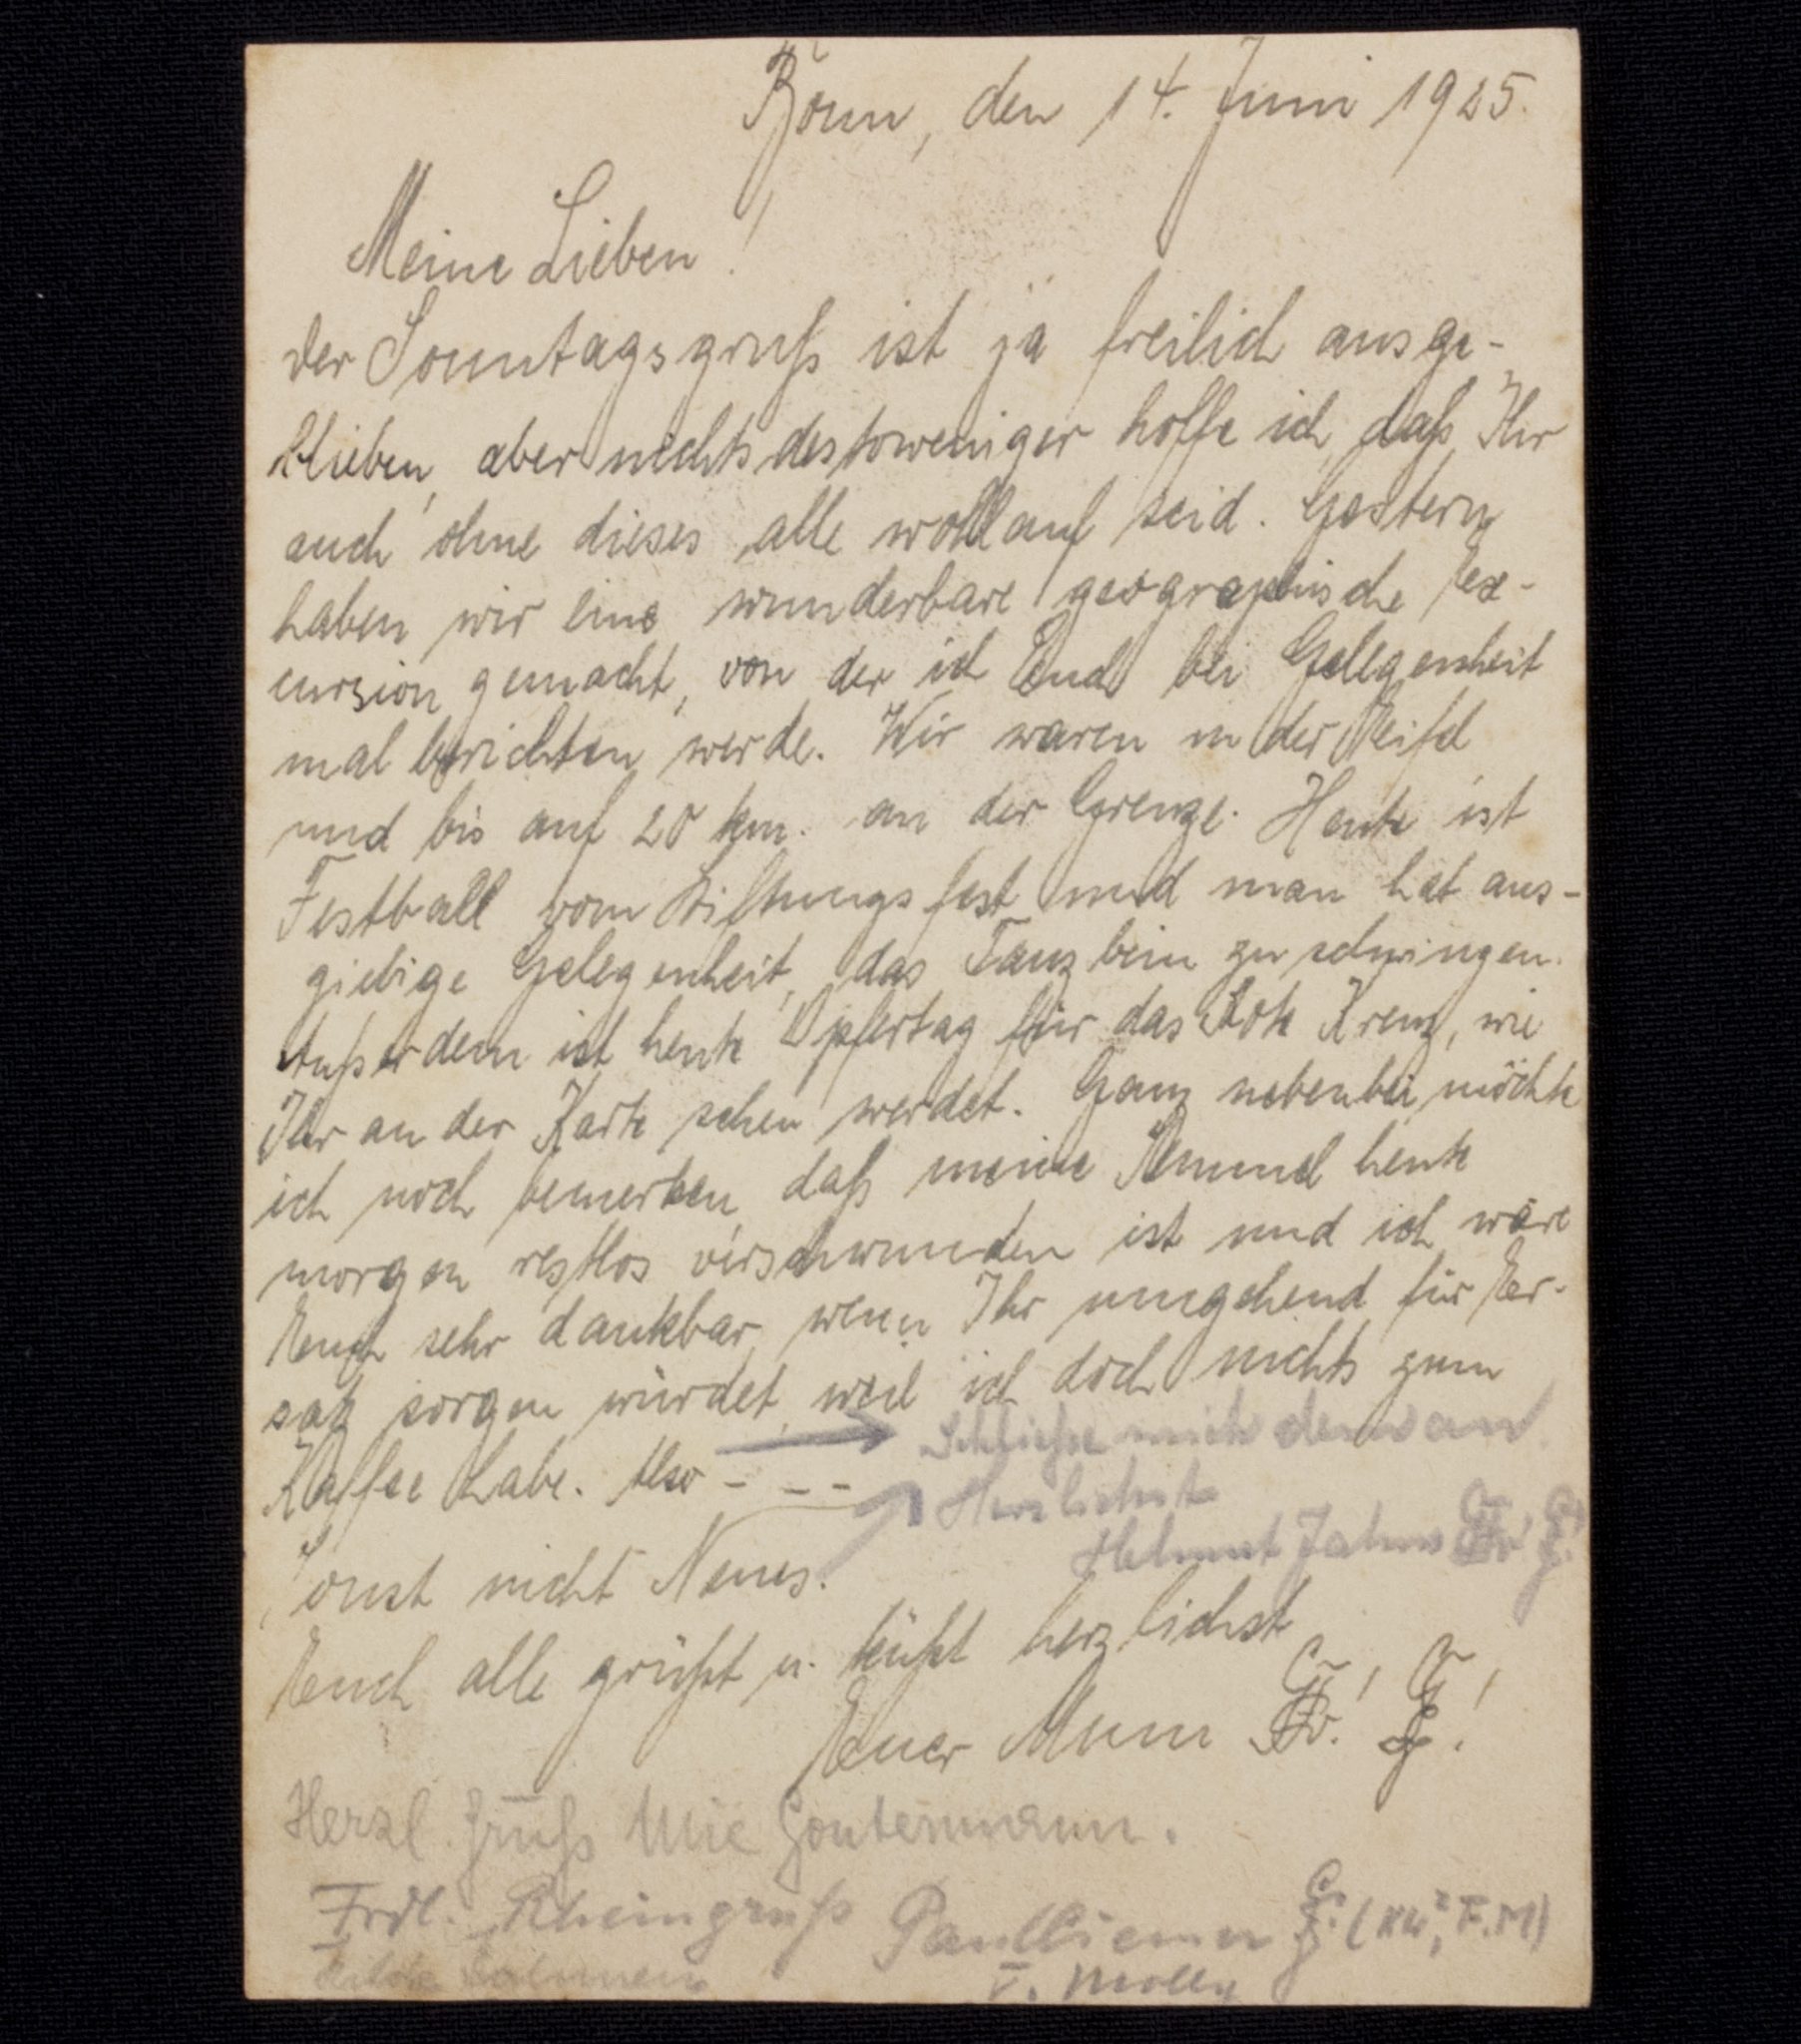 Bonn, den 14. Juni 1925.
Meine Lieben!
der Sonntagsgruß ist ja freilich ausge-
blieben, aber nichtsdestoweniger hoffe ich, daß Ihr
auch ohne dieses alle wohlauf seid. Gestern
haben wir eine wunderbare geographische Ex-
cursion gemacht, von der ich Euch bei Gelegenheit
mal berichten werde. Wir waren in der Eifel
und bis auf 20 km. an der Grenze. Heute ist
Festball vom Stiftungsfest und man hat aus-
giebige Gelegenheit, das Tanzbein zu schwingen.
Außerdem ist heute Opfertag für das Rote Kreuz, wie
Ihr an der Karte sehen werdet. Ganz nebenbei möchte
ich noch bemerken, daß meine
heute
morgen restlos verschwunden ist und ich wäre
Euch sehr dankbar, wenn Ihr umgehend für Er-
satz sorgen würdet, weil ich doch nichts zum
Kaffee habe. Also - - -
Schließe mich dem an
Herzlichst
Helmut
Sonst nicht Neues.
Euch alle grüßt u. küßt herzlichst
Euer
Herzl. Gruß
Frdl. Rheingruß Paul